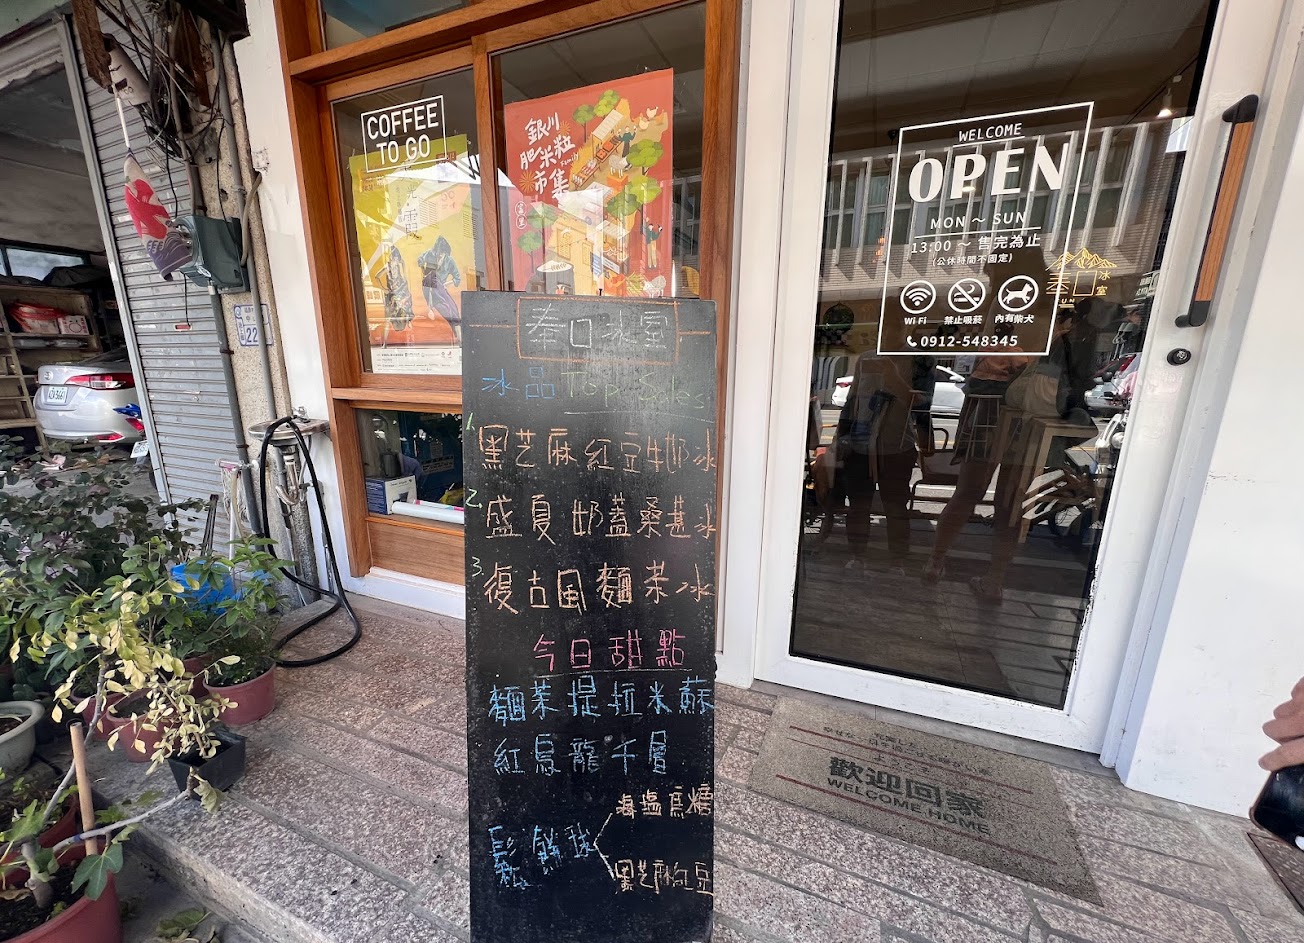 COFFEE
TO GO
銀川
肥米粒
Family
市集
WELCOME
OPEN
MON ～ SUN
13:00 ～ 售完為止
(公休時間不固定)
WiFi 禁止吸菸 內有柴犬
0912-548345
冰
室
22
冰品 Top Sales
1. 黑芝麻紅豆牛奶冰
2. 盛夏奶蓋桑葚冰
3. 復古風麵茶冰
今日甜點
麵茶提拉米蘇
紅烏龍千層
鬆餅球
海塩焦糖
黑芝麻紅豆
歡迎回家
WELCOME HOME